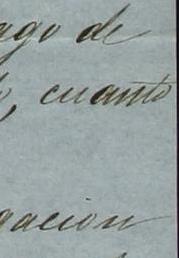 ago de
o, cuanto
gacion